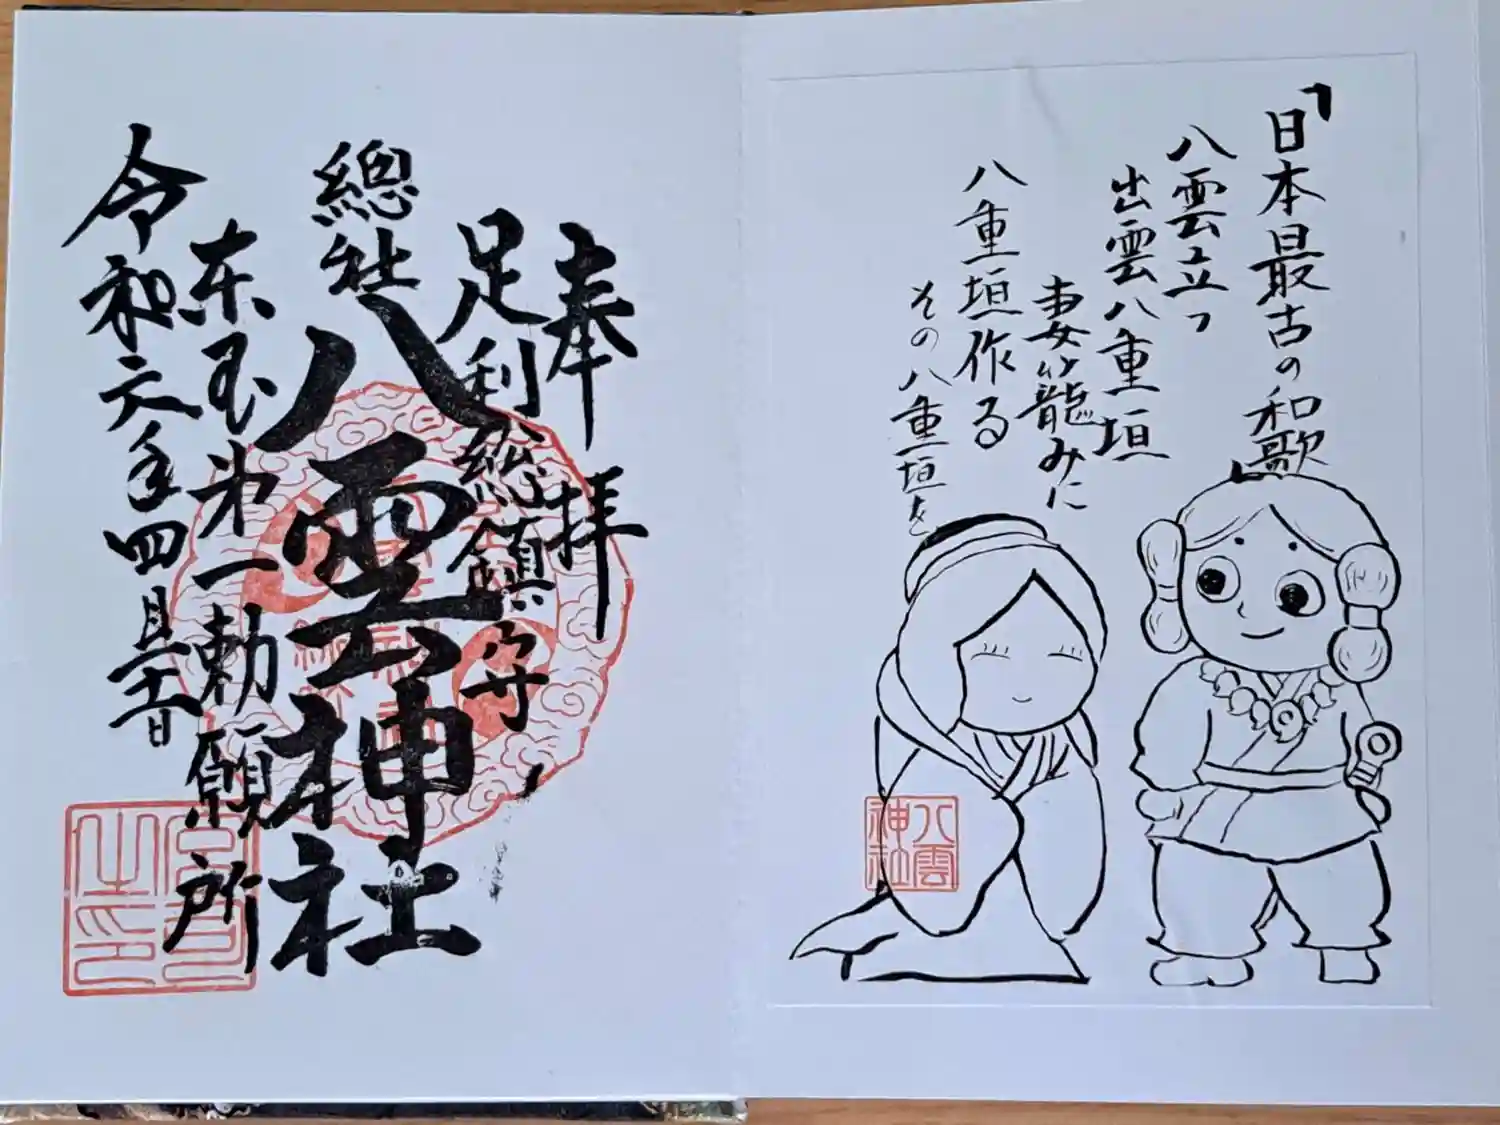 「日本最古の和歌」
八雲立つ
出雲八重垣
妻籠みに
八重垣作る
その八重垣を
八雲
神社
奉拝
足利総鎮守
總社
八雲神社
东国第一勅願所
令和六年四月二十一日